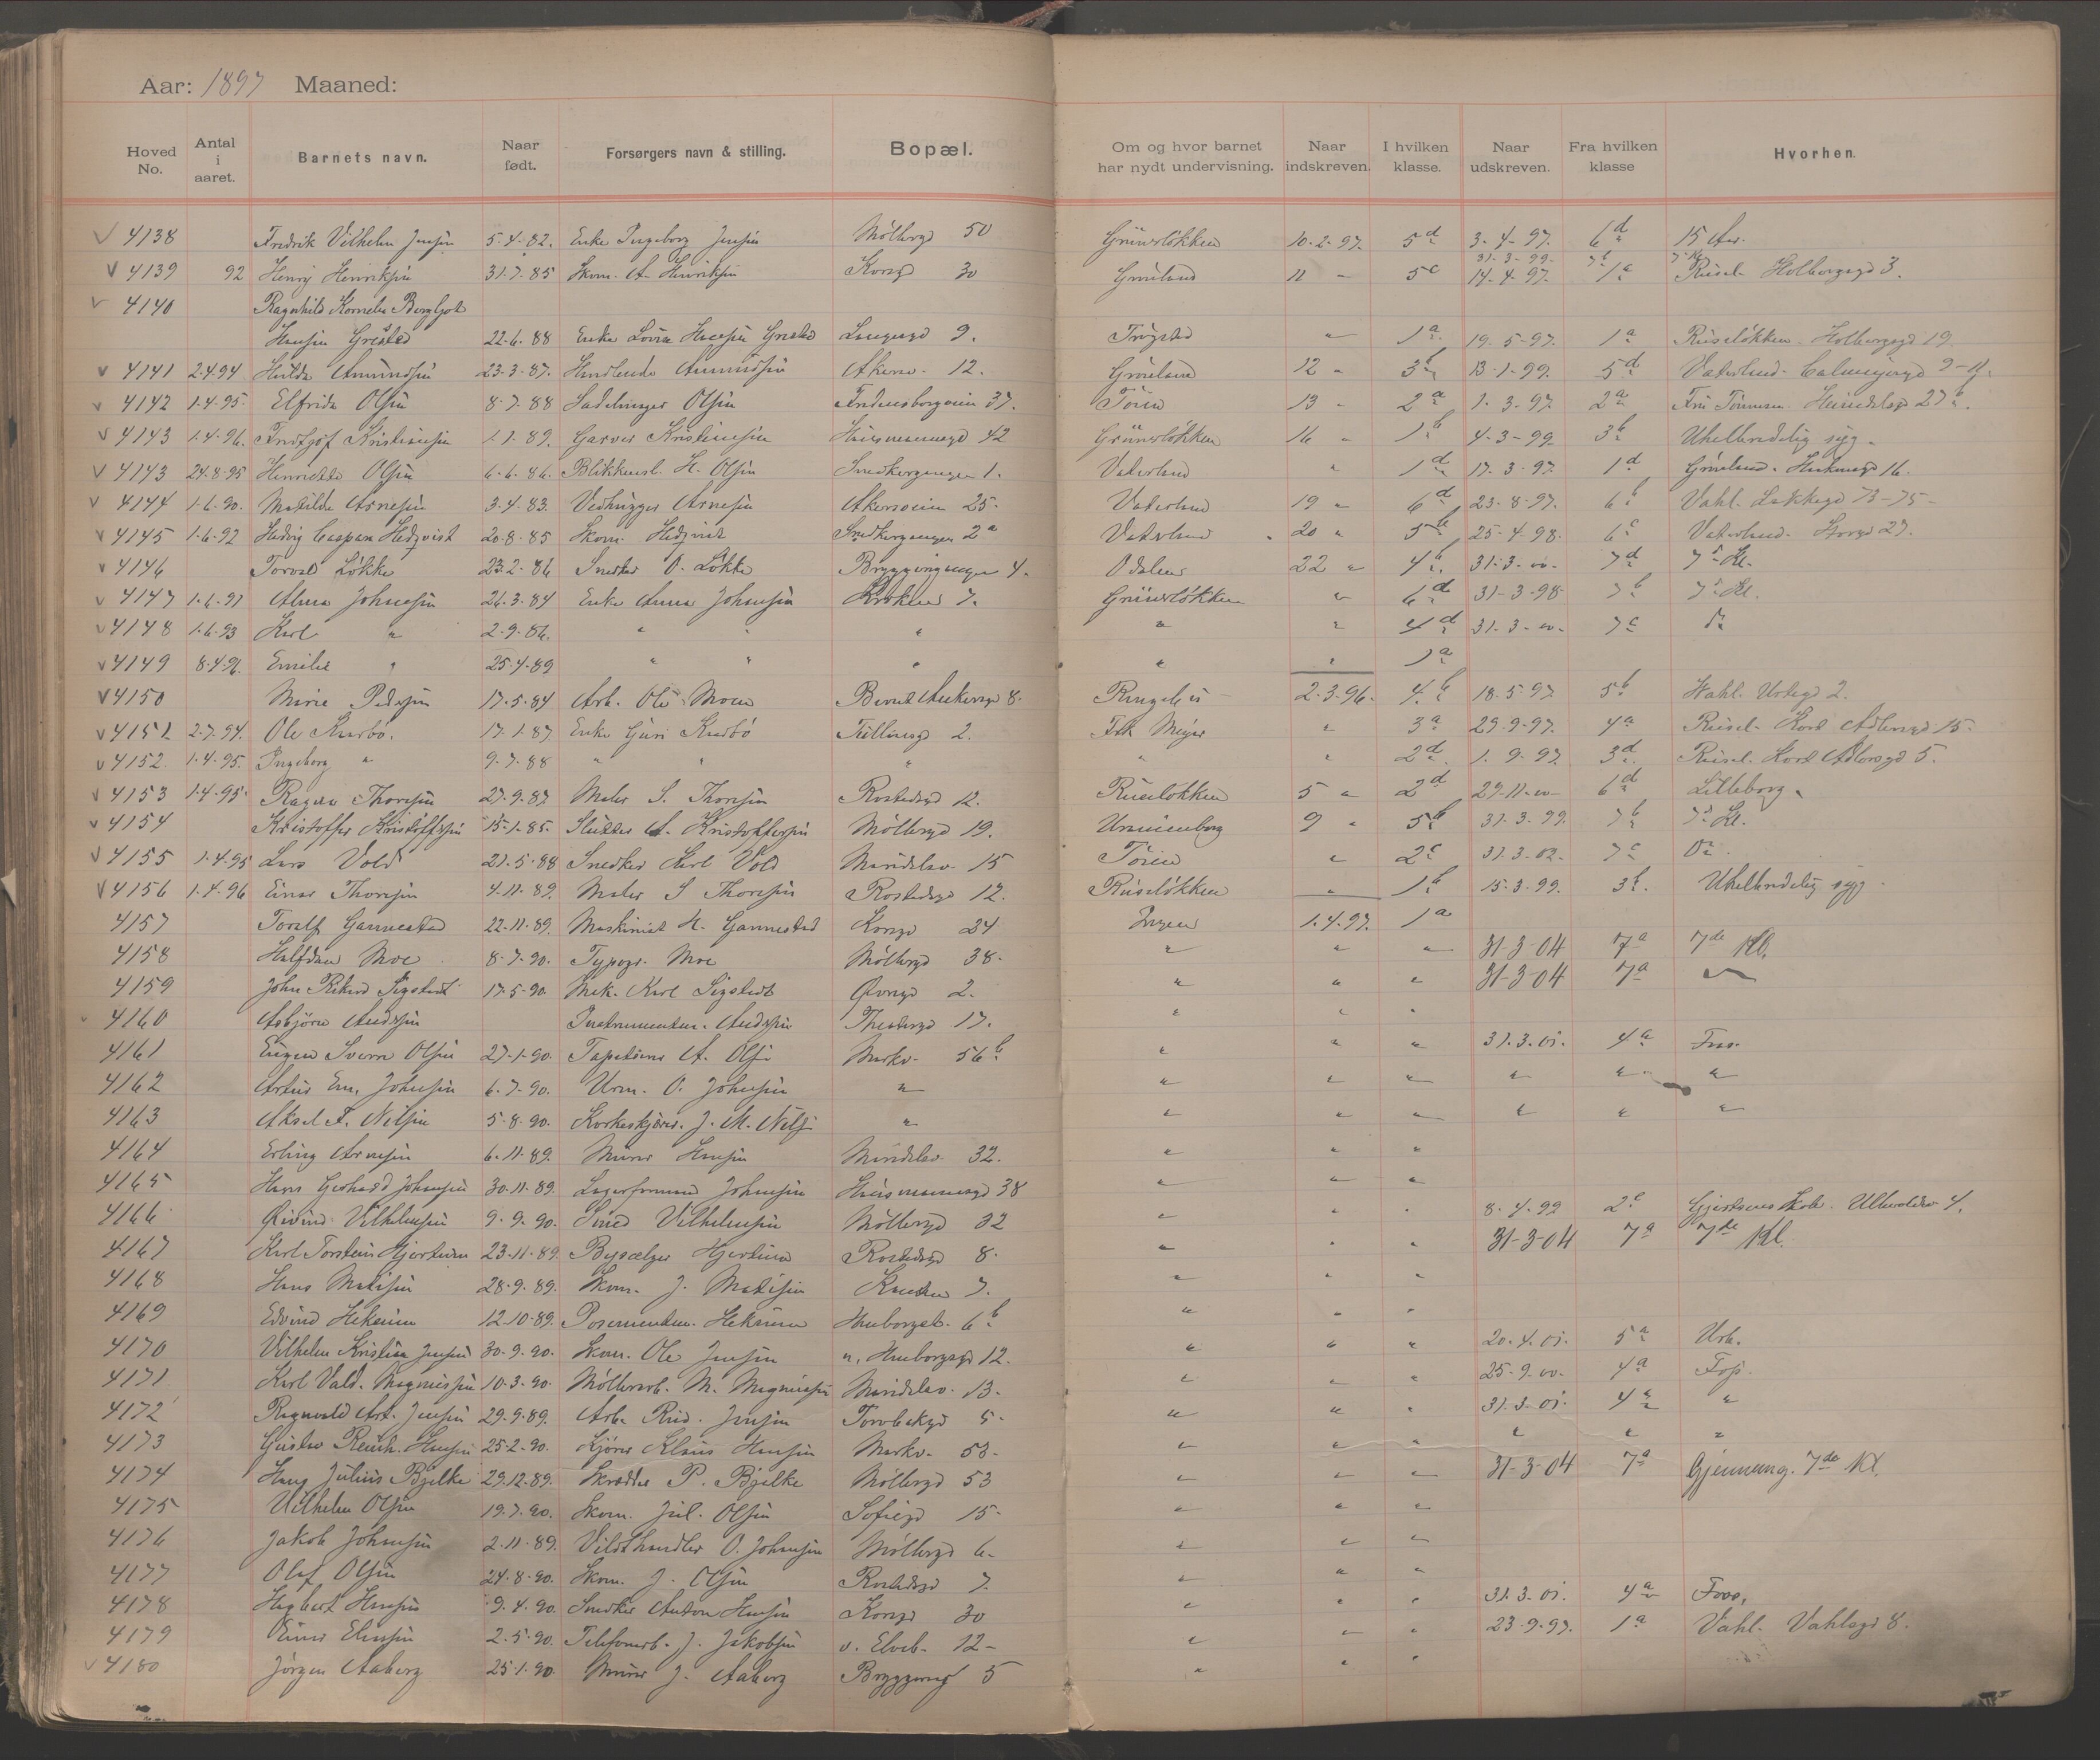 Aar: 1897 Maaned:
Hoved No. Antal i aaret. Barnets navn. Naar født. Forsørgers navn & stilling. Bopæl. Om og hvor barnet har nydt undervisning. Naar indskreven. I hvilken klasse. Naar udskreven. Fra hvilken klasse Hvorhen.
V 4138 Fredrik Vilhelm Jensen 5-4-82. Enke Ingeborg Jensen Møllergd 50 Grünerløkken 10-2-97. 5d 3-4-97. 6d 15 Aar.
31-3-99- 7b 7de Kl.
V 4139 92 Henry Henriksen 31.7.85 Skom. A. Henriksen Korsgd 30 Grønland 11 - 5c 14-4-97. 1a Rusel. Holbergsgd 3.
V 4140 Ragnhild Kornelia Bergljot
Hansen Grøsted 22-6-88 Enke Lovise Hansen Grøsted Langesgd 9. Trøgstad " 1a 19-5-97. 1a Ruseløkken. Holbergsgd 19
V 4141 2-4-94 Hulda Amundsen 23-3-87. Amundsen Akersv. 12. Grønland 12 " 3b 13-1-99. 5d Vaterland. Calmeyersgd 9-11.
V 4142 1-4-95- Elfrida Olsen 8-7-88 Sadelmager Olsen Fredensborgveien 37. Tøien 13 - 2a 1-3-97. 2a 27b.
V 4143 1-4-96. Fridtjof Kristiansen 1.1.89. Garver Kristiansen Hausmannsgd 42 Grünerløkken 16 " 1b 4-3-99. 3b Uhelbredelig syg.
V 4143 24-8-95 Henriette Olsen 6-6-86. Blikkensl. H. Olsen Snedkergangen 1. Vaterland " 1d 17-3-97. 1d Grønland. 16.
V 4144 1-6-90. Matilde Arnesen 3-4-83. Vedhugger Arnesen Akersveien 25- Vaterland 19 " 6d 23-8-97. 6b Vahl. Lakkegd 73-75-
V 4145 1-6-92 Hedvig Caspara Hedqvist 20-8-85 Skom. Hedqvist Snedkergangen 2a Vaterland 20 " 5b 25-4-98. 6c Vaterland. Storgd 27.
V 4146 Torvald Løkke 23-2-86 Snedker O. Løkke Bryggerigangen 4. Odalen 22 " 4b 31-3-00- 7d 7de Kl.
V 4147 1-6-91 Alma Johansen 26-3-84 Enke Anna Johansen Krokens 7. Grünerløkken " 6d 31-3-98- 7b 7de Kl.
V 4148 1-6-93 Karl " 2-9-86. " " " " " 4d 31-3-00- 7c do
V 4149 8-4-96. Emilie " 25-4-89 " " " " " 1a
V 4150 Marie Pedersen 17-5-84 Arb. Ole Moen Bernt Ankersgd 8. Ringebu 2-3-96. 4b 18-5-97. 5b Vahl. Urtegd 2.
V 4151 2-7-94. Ole Knarbø. 17-1-87 Enke Guri Knarbø Tullinsgd 2. Frk Meyer " 3a 29-9-97. 4a Rusel. Kort Adlersgd 15-
V 4152. 1-4-95. Ingeborg " 9-7-88 " " " " " 2d 1-9-97. 3d Rusel. Kort Adlersgd 5.
V 4153 1-4-95- Ragna Thoresen 27-9-87 Maler S. Thoresen Rostedsgd 12. Ruseløkken 5 " 2d 29-11-00- 6d Lilleborg.
V 4154 Kristoffer Kristoffersen 15-1-85- A. Kristoffersen Møllergd 19. Uranienborg 9 " 5b 31-3-99. 7b 7de Kl.
V 4155 1-4-95 Lars Vold 21-5-88 Snedker Karl Vold Maridalsv. 15 Tøien " 2c 31-3-02. 7c Do
V 4156 1-4-96 Einar Thoresen 4-11-89. Maler S Thoresen Rostedsgd 12. Ruseløkken " 1b 15-3-99. 3b. Uhelbredelig syg.
4157 Toralf Gannestad 22-11-89. Maskinist H. Gannestad Korsgd 24 Ingen 1-4-97. 1a
4158 Halfdan Moe 8-7-90. Typogr. Moe Møllergd 38- " " " 31-3-04 7a 7de Kl.
4159 John Rikard Sigstedt 17-5-90. Mek. Karl Sigstedt Øvregd 2. " " " 31-3-04 7a "
4160 Asbjørn Andersen Instrumentm. Andersen Theatergd 17. " " "
4161 Eugen Sverre Olsen 27-1-90. Tapetserer A. Olsen Markv. 56b " " " 31.3.01. 4a Foss.
4162 Artur Em. Johansen 6-7-90. Urm. O. Johansen " " " " " " "
4163 Aksel F. Nilsen 5-8-90. Korkeskjærer. J. M. Nils. " " " " " " "
4164 Erling Arnesen 6-11-89. Murer Hansen Maridalsv. 32. " " "
4165 Hans Gerhard Johansen 30-11-89. Lagerformand Johansen Hausmannsgd 38 " " "
4166 Øivind Vilhelmsen 9-9-90. Smed Vilhelmsen Møllergd 32 " " " 8-4-99 2c Gjertsens skole. Ullevoldsv 4.
4167 Karl Torstein Hjertum 23-11-89. Hjertum Rostedsgd 8. " " " 31-3-04 7a 7de Kl.
4168 Hans Matisen 28-9-89. Skom. J. Matisen 7. " " "
4169 Edvind 12-10-89. 6b " " "
4170 Vilhelm Kristian Jensen 30-9-90. Skom. Ole Jensen 12. " " " 20-4-01. 5a Urb.
4171 Karl Vald. Magnussen 10-3-90. Møllerarb. M. Magnussen Maridalsv. 13. " " " 25-9-00- 4a Foss.
4172 Ragnvald Art. Jensen 29-9-89. Arb. Rud. Jensen Torvbakgd 5- " " " 31.3.01. 4a "
4173 Gustav Reinh. Hansen 25-2-90. Kjører Klaus Hansen Markv. 53- " " " " " "
4174 Haug Julius Bjelke 29-12-89. Skrædder P. Bjelke Møllergd 53 " " " 31-3-04 7a Gjennemg. 7de Kl.
4175 Vilhelm Olsen 19-7-90. Skom. Jul. Olsen Sofiegd 15- " " "
4176 Jakob Johansen 2-11-89. Vildthandler O. Johansen Møllergd 6- " " "
4177 Olaf Olsen 24-8-90. Skom. J. Olsen Rostedsgd 7. " " "
4178 Hagbart Hansen 9-4-90. Snedker Anton Hansen Korsgd 30 " " " 31.3.01. 4a Foss.
4179 Einar Eliassen 2-5-90. Telefonarb. J. Jakobsen v. Elveb. 12- " " " 23-9-97. 1a Vahl. Vahlsgd 8.
V 4180 Jørgen Aaberg 25-1-90 Murer J. Aaberg Bryggerigd 5 " " "